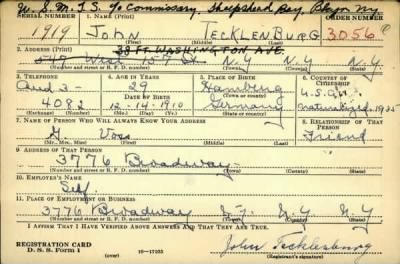 U. S. M. T. S. % Commissary, Sheepshead Bay, Bklyn NY
SERIAL NUMBER 1. NAME (Print) ORDER NUMBER
1919 JOHN TECKLENBURG 3056
(First) (Middle) (Last)
38 FT. WASHINGTON AVE.
2. ADDRESS (Print)
549 West 157 St N.Y N.Y. N.Y.
(Number and street or R. F. D. number) (Town) (County) (State)
3. TELEPHONE 4. AGE IN YEARS 5. PLACE OF BIRTH 6. COUNTRY OF CITIZENSHIP
Aud 3- 29 Hamburg U.S.A.
(Town or county)
4082 12-14-1910 Germany naturalized 1935
(Exchange) (Number) (Mo.) (Day) (Yr.) (State or country)
7. NAME OF PERSON WHO WILL ALWAYS KNOW YOUR ADDRESS 8. RELATIONSHIP OF THAT PERSON
Voss Friend
9. ADDRESS OF THAT PERSON
3776 Broadway
(Number and street or R. F. D. number) (Town) (County) (State)
10. EMPLOYER'S NAME
Self
11. PLACE OF EMPLOYMENT OR BUSINESS
3776 Broadway N.Y. N.Y. N.Y.
(Number and street or R. F. D. number) (Town) (County) (State)
I AFFIRM THAT I HAVE VERIFIED ABOVE ANSWERS AND THAT THEY ARE TRUE.
REGISTRATION CARD
D. S. S. Form 1 (over) 16-17105
John Tecklenburg
(Registrant's signature)